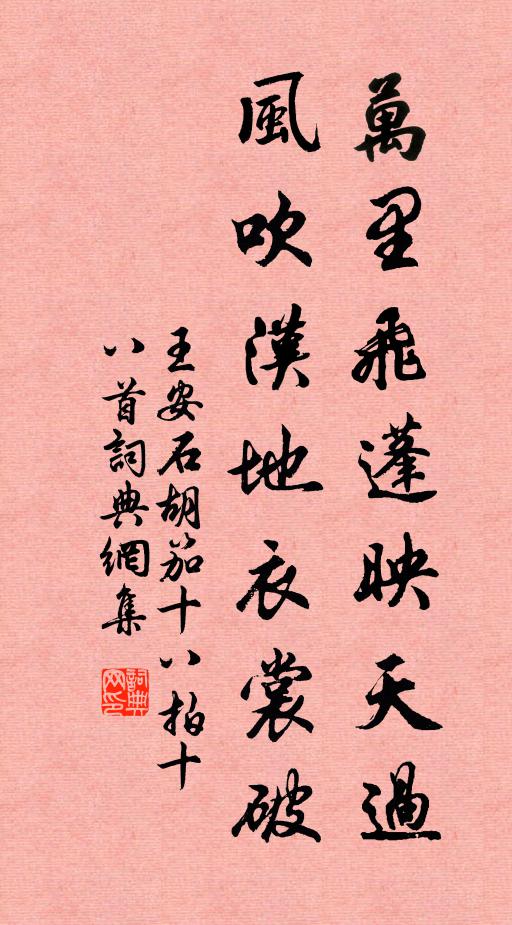 萬里飛蓬映天過
風吹漢地衣裳破
王安石胡笳十八拍十
八首詞典網集
詞典
网印